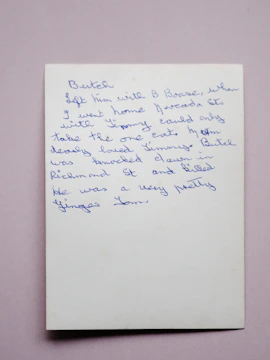 Butch
Left him with B Brase, when
I went home Arcada St
with Timmy could only
take the one cat. Mom
dearly loved Timmy. Butch
was knocked down in
Richmond St and killed
He was a very pretty
Ginger Tom.